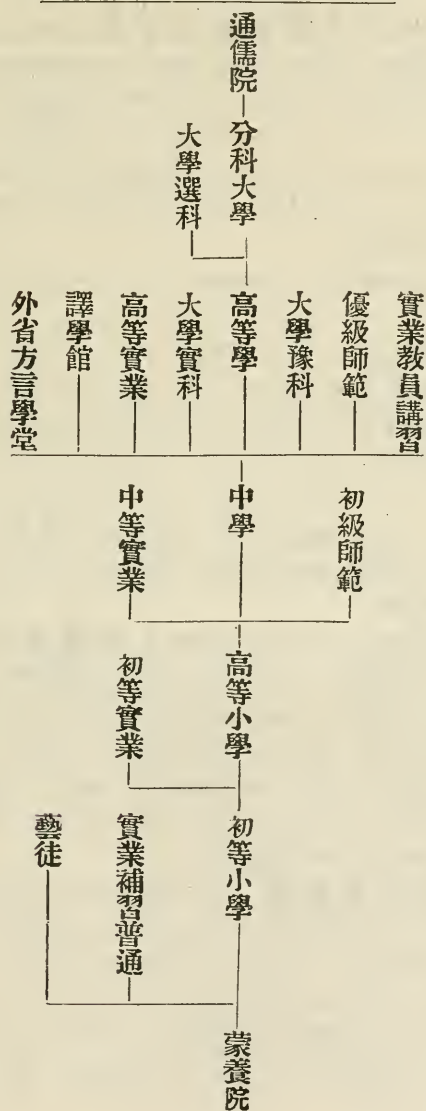 通儒院
分科大學
大學選科
實業教員講習
優級師範
大學豫科
高等學
大學實科
高等實業
譯學館
外省方言學堂
初級師範
中學
中等實業
高等小學
初等實業
初等小學
實業補習普通
藝徒
蒙養院